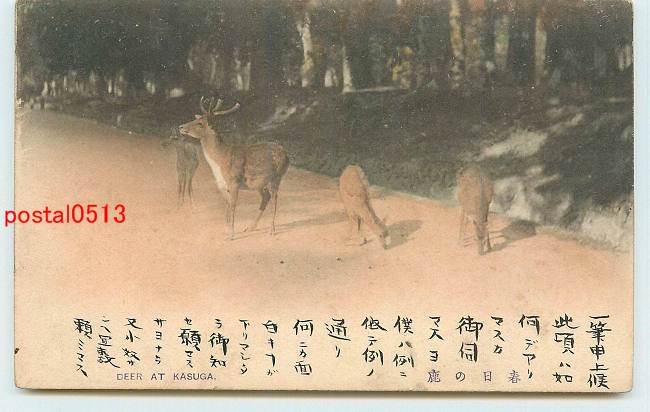 一筆申上候
此頃ハ如
何デアリ
マスカ
御伺
マスヨ
僕ハ例ニ
依テ例ノ
通リ
何ニカ面
白キ
下リマシタ
ラ御知
セ願マス
サヨナラ
又小
ヘ宜敷
願ヒマス
春日の鹿
DEER AT KASUGA.
postal0513